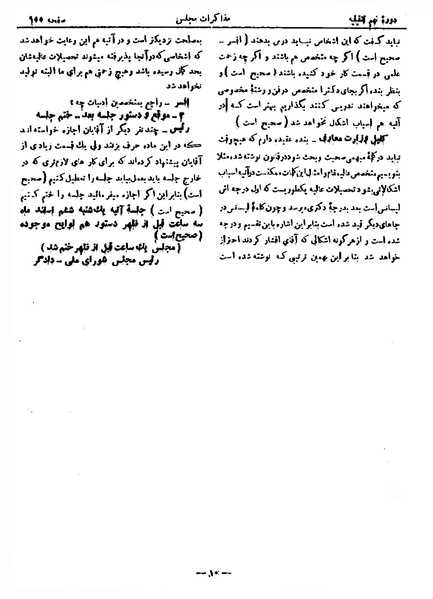 دورهٔ نهم تقنینیه
مذاکرات مجلس
صفحه ۹۰۰
نباید گرفت که این اشخاص نیاید درس بدهند (افسر -
صحیح است) اگر چه متخصص هم باشند و اگر چه زحمت
علمی در قسمت کار خود کشیده باشند (صحیح است) و
بنظر بنده اگر بجای دکتر متخصص در فن و رشتهٔ مخصوصی
که میخواهند تدریس کنند بگذاریم بهتر است که در
آتیه هم اسباب اشکال نخواهد شد (صحیح است)
کفیل وزارت معارف - بنده عقیده دارم که هیچوقت
نباید در کلمهٔ مبهمی صحبت و بحث شود در قانون نوشته شده مثلا
اشکالاتی بشود تحصیلات عالیه یکطوریست که اول درجه اش
لیسانس است بعد بدرجهٔ دکتری میرسد و چون کلمهٔ لیسانس در
جاهای دیگر قید شده است بنابر این اشاره باین تقسیم و درجه
شده است و از هر گونه اشکالی که آقای افشار کردند احتراز
خواهد شد بنا بر این بهمین ترتیبی که نوشته شده است
بمصلحت نزدیکتر است و در آتیه هم این رعایت خواهد شد
که اشخاصی که در آنجا پذیرفته میشوند تحصیلات عالیشان
بحد کمال رسیده باشد و هیچ زحمتی هم برای ما البته تولید
نخواهد شد
افسر - راجع بمتخصصین ادبیات چه؟
۳ - موقع و دستور جلسه بعد - ختم جلسه
رئیس - چند نفر دیگر از آقایان اجازه خواسته اند
که در این ماده حرف بزنند ولی یک قسمت زیادی از
آقایان پیشنهاد کرده اند که برای کار های لازمتری که در
خارج جلسه باید بعمل بیاید جلسه را تعطیل کنیم (صحیح
است) بنابر این اگر اجازه میفرمائید جلسه را ختم کنیم
(صحیح است) جلسهٔ آتیه یکشنبه ششم اسفند ماه
سه ساعت قبل از ظهر دستور هم لوایح موجوده
(صحیح است)
(مجلس یک ساعت قبل از ظهر ختم شد)
رئیس مجلس شورای ملی - دادگر
- ۱۰ -